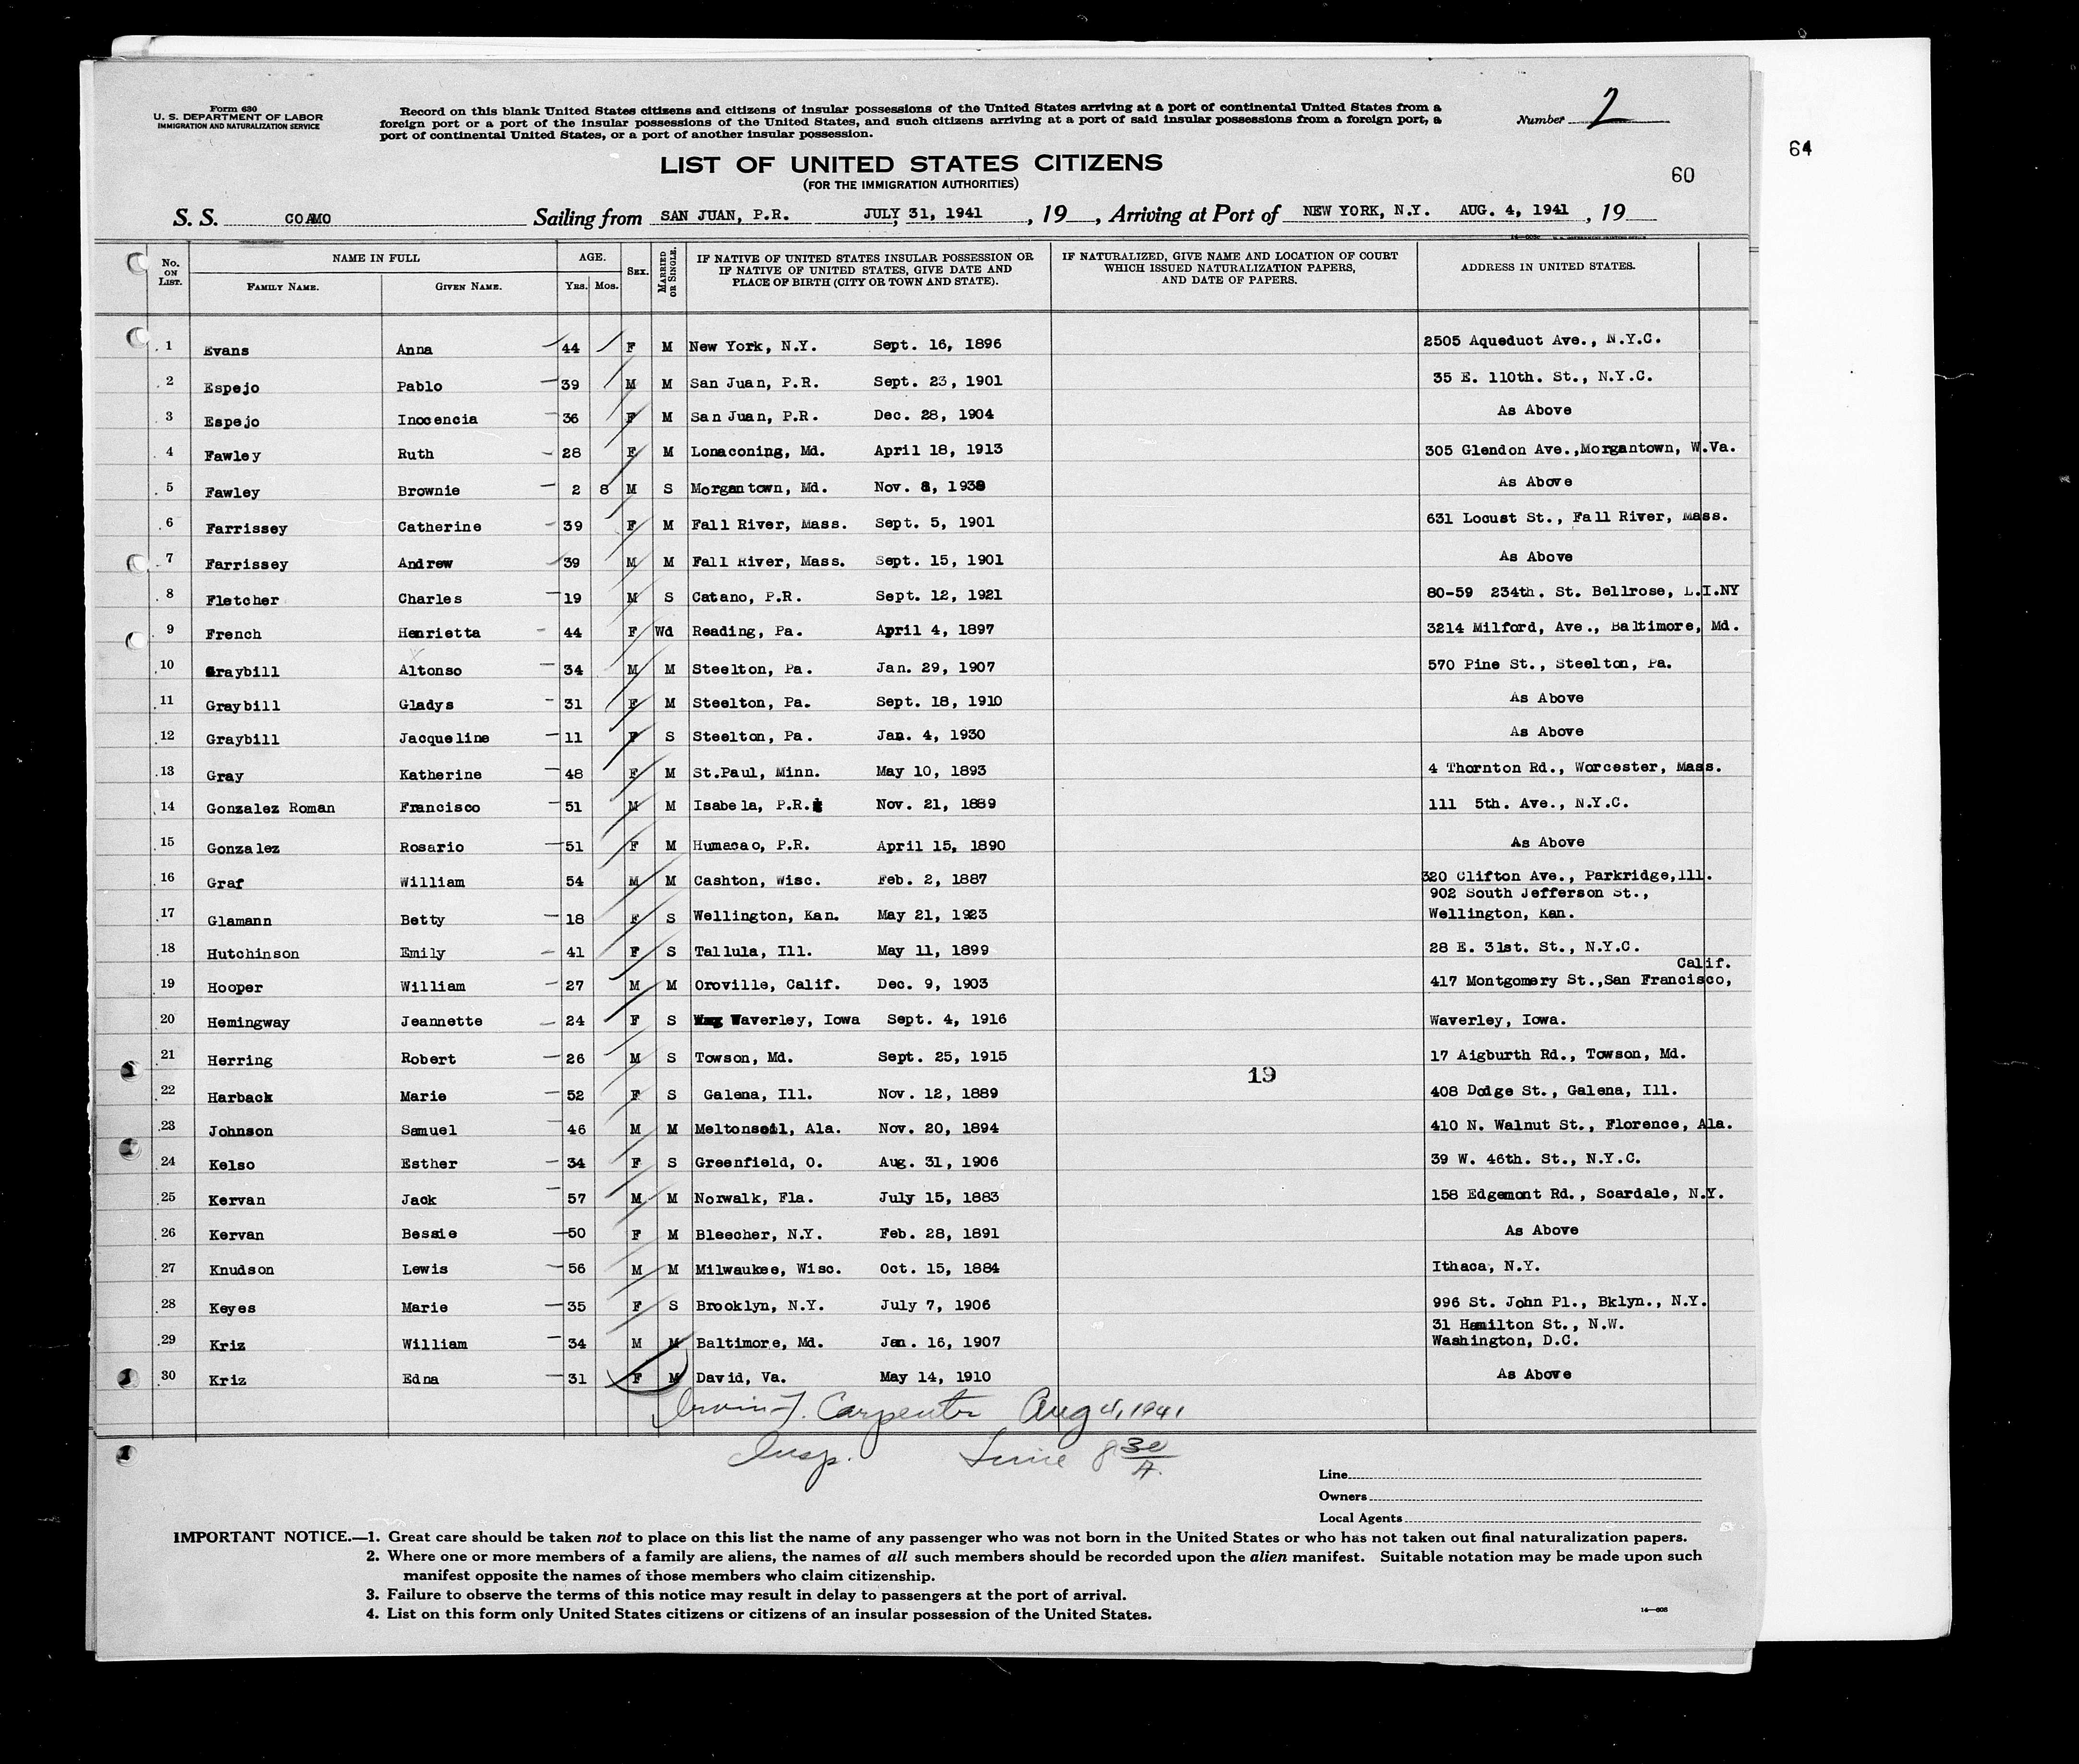 Form 630
U. S. DEPARTMENT OF LABOR
IMMIGRATION AND NATURALIZATION SERVICE
Record on this blank United States citizens and citizens of insular possessions of the United States arriving at a port of continental United States from a
foreign port or a port of the insular possessions of the United States, and such citizens arriving at a port of said insular possessions from a foreign port, a
port of continental United States, or a port of another insular possession.
Number 2
64
LIST OF UNITED STATES CITIZENS
(FOR THE IMMIGRATION AUTHORITIES)
60
S. S. COAMO Sailing from SAN JUAN, P.R. JULY 31, 1941, 19 , Arriving at Port of NEW YORK, N.Y. AUG. 4, 1941, 19
No. ON LIST. NAME IN FULL FAMILY NAME. GIVEN NAME. AGE. YRS. MOS. SEX. MARRIED OR SINGLE. IF NATIVE OF UNITED STATES INSULAR POSSESSION OR IF NATIVE OF UNITED STATES, GIVE DATE AND PLACE OF BIRTH (CITY OR TOWN AND STATE). IF NATURALIZED, GIVE NAME AND LOCATION OF COURT WHICH ISSUED NATURALIZATION PAPERS, AND DATE OF PAPERS. ADDRESS IN UNITED STATES.
1 Evans Anna 44 F M New York, N.Y. Sept. 16, 1896 2505 Aqueduct Ave., N.Y.C.
2 Espejo Pablo 39 M M San Juan, P.R. Sept. 23, 1901 35 E. 110th. St., N.Y.C.
3 Espejo Inocencia 36 F M San Juan, P.R. Dec. 28, 1904 As Above
4 Fawley Ruth 28 F M Lonaconing, Md. April 18, 1913 305 Glendon Ave.,Morgantown, W.Va.
5 Fawley Brownie 2 8 M S Morgantown, Md. Nov. 8, 1938 As Above
6 Farrissey Catherine 39 F M Fall River, Mass. Sept. 5, 1901 631 Locust St., Fall River, Mass.
7 Farrissey Andrew 39 M M Fall River, Mass. Sept. 15, 1901 As Above
8 Fletcher Charles 19 M S Catano, P.R. Sept. 12, 1921 80-59 234th. St. Bellrose, L.I.NY
9 French Henrietta 44 F Wd Reading, Pa. April 4, 1897 3214 Milford, Ave., Baltimore, Md.
10 Graybill Altonso 34 M M Steelton, Pa. Jan. 29, 1907 570 Pine St., Steelton, Pa.
11 Graybill Gladys 31 F M Steelton, Pa. Sept. 18, 1910 As Above
12 Graybill Jacqueline 11 F S Steelton, Pa. Jan. 4, 1930 As Above
13 Gray Katherine 48 F M St.Paul, Minn. May 10, 1893 4 Thornton Rd., Worcester, Mass.
14 Gonzalez Roman Francisco 51 M M Isabela, P.R. Nov. 21, 1889 111 5th. Ave., N.Y.C.
15 Gonzalez Rosario 51 F M Humacao, P.R. April 15, 1890 As Above
16 Graf William 54 M M Cashton, Wisc. Feb. 2, 1887 320 Clifton Ave., Parkridge,Ill.
902 South Jefferson St.,
17 Glamann Betty 18 F S Wellington, Kan. May 21, 1923 Wellington, Kan.
18 Hutchinson Emily 41 F S Tallula, Ill. May 11, 1899 28 E. 31st. St., N.Y.C.
Calif.
19 Hooper William 27 M M Oroville, Calif. Dec. 9, 1903 417 Montgomery St.,San Francisco,
20 Hemingway Jeannette 24 F S Waverley, Iowa Sept. 4, 1916 Waverley, Iowa.
21 Herring Robert 26 M S Towson, Md. Sept. 25, 1915 17 Aigburth Rd., Towson, Md.
19
22 Harback Marie 52 F S Galena, Ill. Nov. 12, 1889 408 Dodge St., Galena, Ill.
23 Johnson Samuel 46 M M Meltonsoil, Ala. Nov. 20, 1894 410 N. Walnut St., Florence, Ala.
24 Kelso Esther 34 F S Greenfield, O. Aug. 31, 1906 39 W. 46th. St., N.Y.C.
25 Kervan Jack 57 M M Norwalk, Fla. July 15, 1883 158 Edgemont Rd., Scardale, N.Y.
26 Kervan Bessie 50 F M Bleecher, N.Y. Feb. 28, 1891 As Above
27 Knudson Lewis 56 M M Milwaukee, Wisc. Oct. 15, 1884 Ithaca, N.Y.
28 Keyes Marie 35 F S Brooklyn, N.Y. July 7, 1906 996 St. John Pl., Bklyn., N.Y.
31 Hamilton St., N.W.
29 Kriz William 34 M M Baltimore, Md. Jan. 16, 1907 Washington, D.C.
30 Kriz Edna 31 F M David, Va. May 14, 1910 As Above
Irwin J. Carpenter Aug 4, 1941
Insp. Time 8 30/A.
Line
Owners
Local Agents
IMPORTANT NOTICE.—1. Great care should be taken not to place on this list the name of any passenger who was not born in the United States or who has not taken out final naturalization papers.
2. Where one or more members of a family are aliens, the names of all such members should be recorded upon the alien manifest. Suitable notation may be made upon such
manifest opposite the names of those members who claim citizenship.
3. Failure to observe the terms of this notice may result in delay to passengers at the port of arrival.
4. List on this form only United States citizens or citizens of an insular possession of the United States.